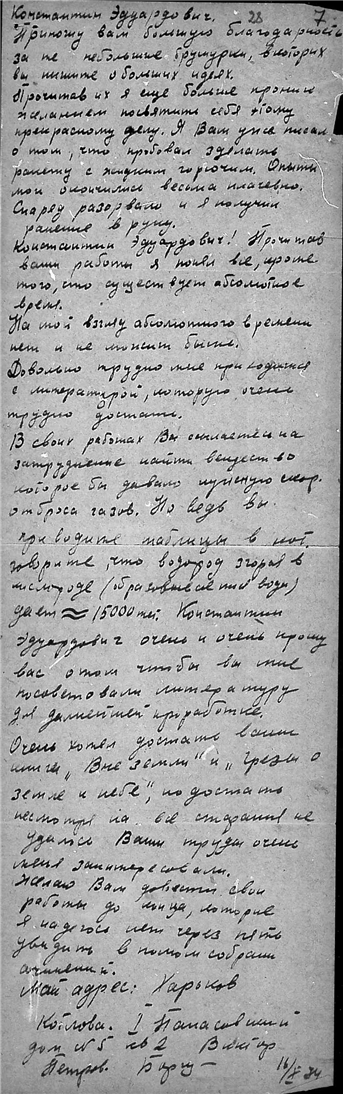 Константин Эдуардович. 28 7
Приношу вам большую благодарность
за не небольшие брушурки, в которых
вы пишите о больших идеях.
Прочитав их я еще больше проник
желанием посвятить себя этому
прекрасному делу. Я Вам уже писал
о том, что пробовал зделать
ракету с жидким горючим. Опыты
мои окончились весьма плачевно.
Снаряд разорвало и я получил
ранение в руку.
Константин Эдуардович! Прочитав
ваши работы я понял все, кроме
того, что существует абсолютное
время.
На мой взгляд абсолютного времени
нет и не может быть.
Довольно трудно мне приходится
с литературой, которую очень
трудно достать.
В своих работах Вы ссылаетесь на
затруднение найти вещество
которое бы давало нужную скор.
отброса газов. Но ведь вы
приводите таблицы в кот.
говорите, что водород згорая в
кислороде (образовывается вода)
дает ≈ 15000 Константин
Эдуардович очень и очень прошу
вас о том чтобы вы мне
посоветовали литературу
для дальнейшей проработки.
Очень хотел достать ваши
книги „Вне земли" и „Грезы о
земле и небе", но достать
несмотря на все старания не
удалось Ваши труды очень
меня заинтересовали.
Желаю Вам довести свои
работы до конца, которые
я надеюсь лет через пять
увидить в полном собрании
сочинений.
Мой адрес: Харьков
Котлова. I Панасовский
дом №5 кв 2 Виктор
Петров. 16/X 34